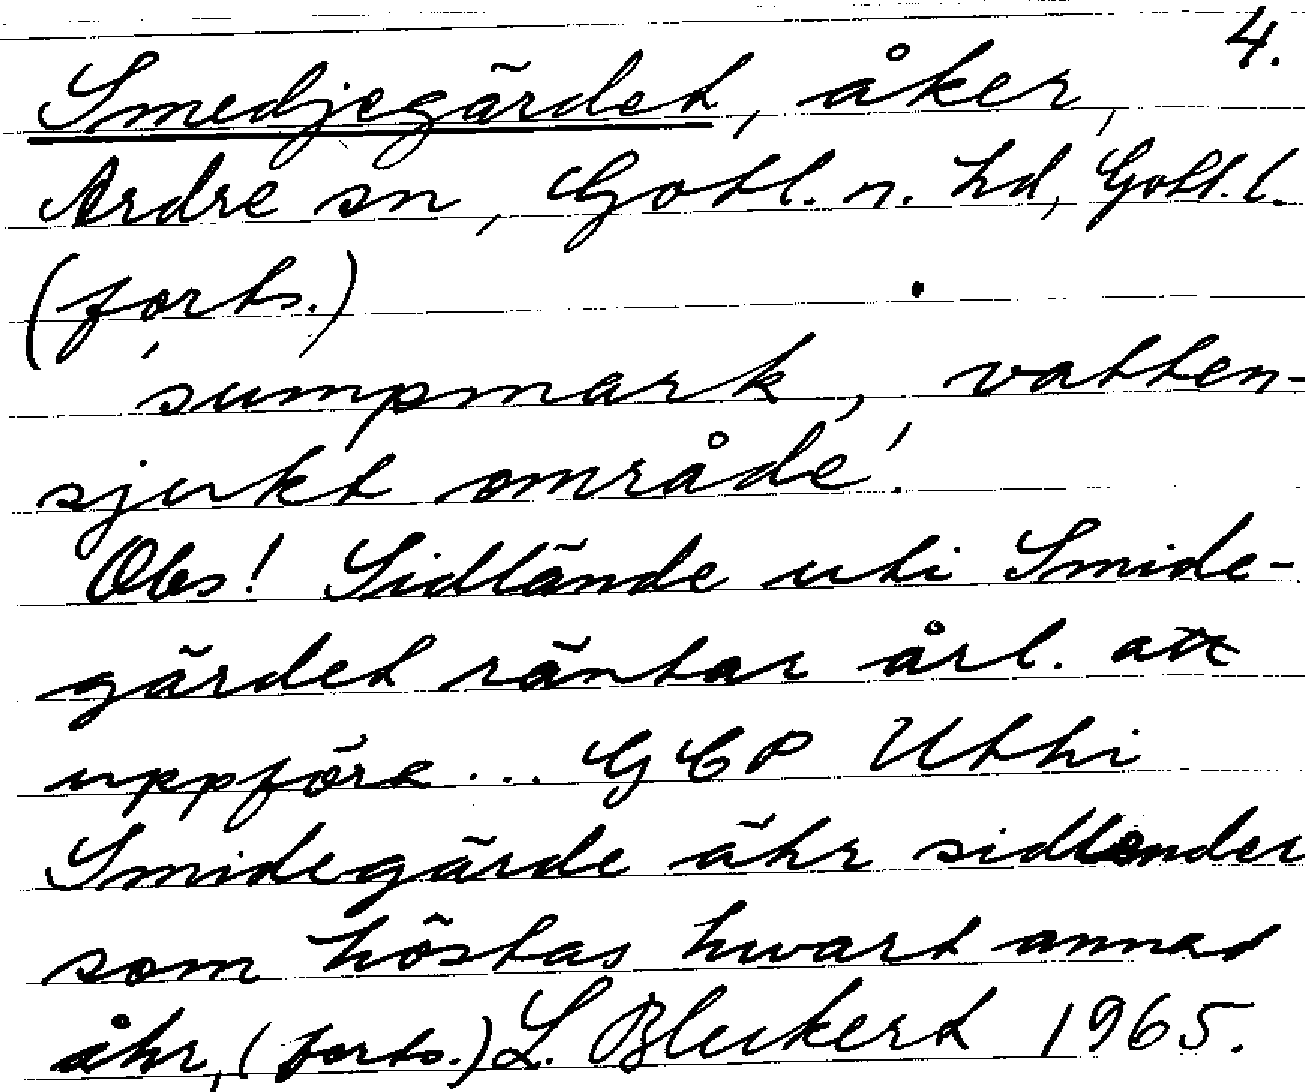 4.
Smedjegärdet, åker,
Ardre sn, Gotl. n. hd, Gotl. l.
(forts.)
'sumpmark, vatten-
sjukt område'.
Obs! Sidlände uti Smide-
gärdet räntar årl. att
uppföra... GCP Utthi
Smidegärde ähr sidlender
som höstas hwart annad
åhr, (forts.) L. Bleckert 1965.